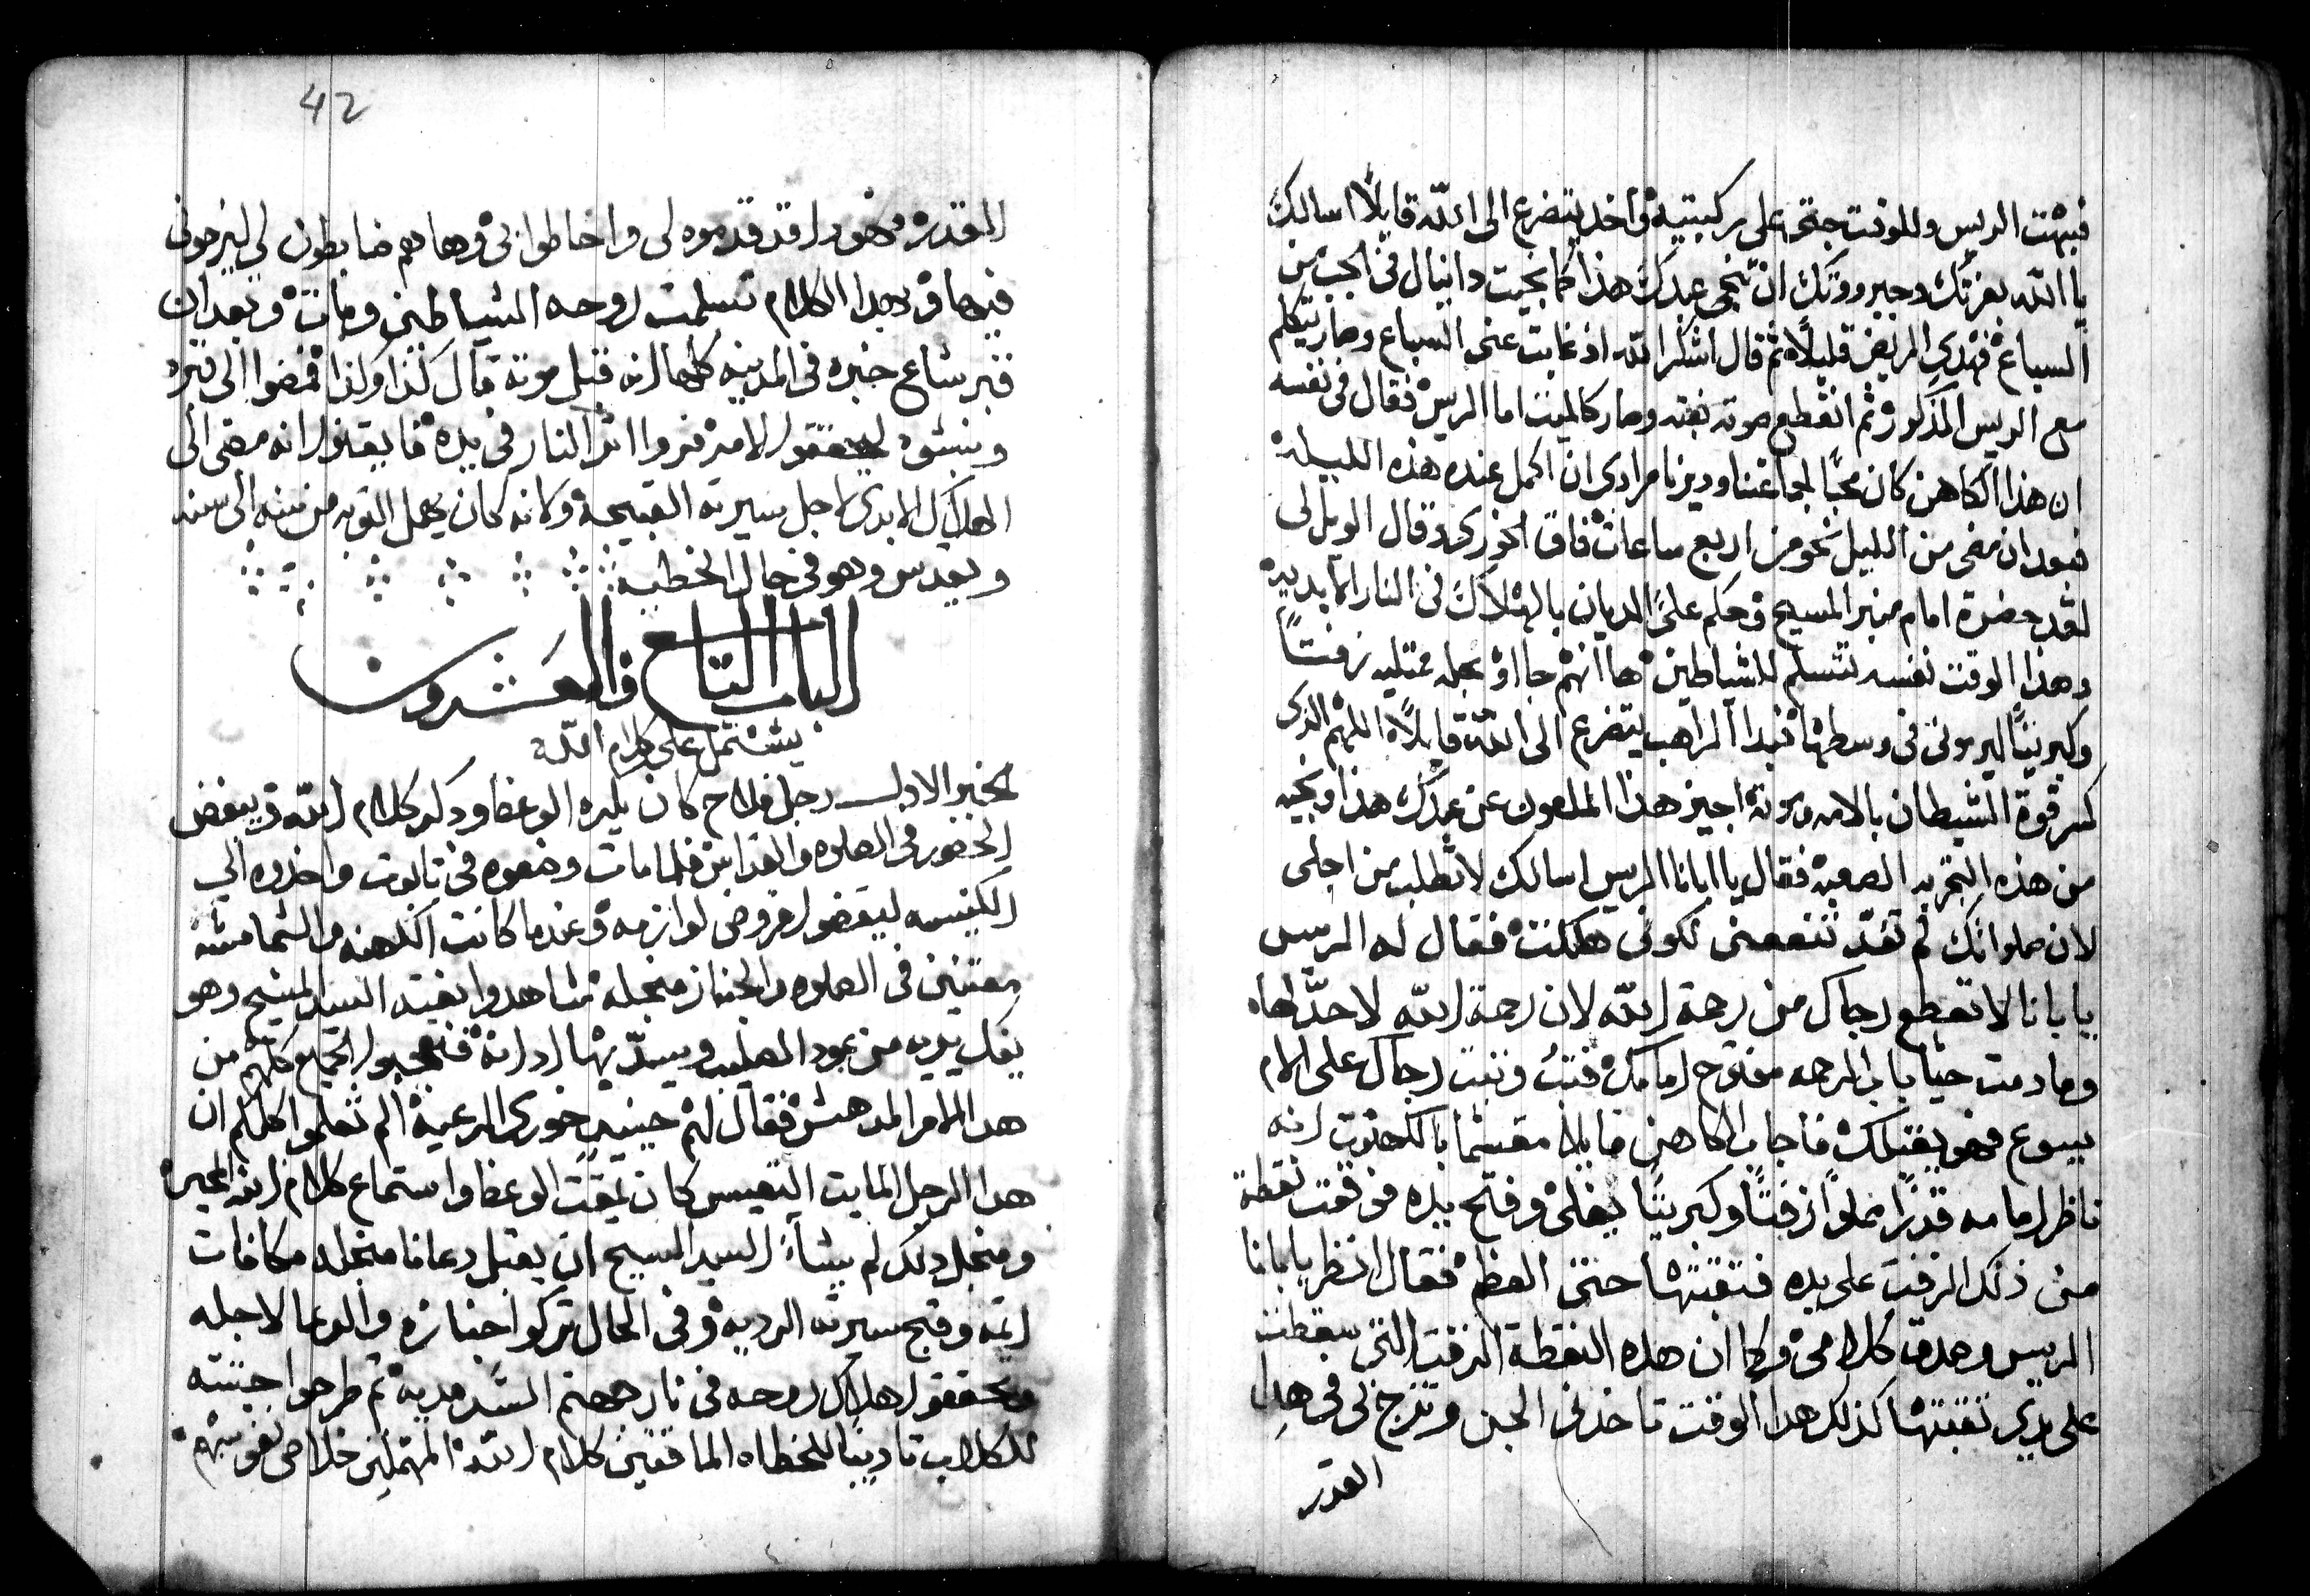 فبهت الريس وللوقت جثى على ركبتيه واخد يتضرع الى الله قايلًا اسالك
يا الله بعزتك وجبروتك ان تنجى عبدك هذا كما نجيت دانيال فى الجب من
السباع فهدى المريض قليلًا ثم قال اشكر الله اذ غابت عنى السباع وصار يتكلم
مع الريس المذكور ثم انقطع صوته بغته وصار كالميت اما الريس فقال فى نفسه
ان هذا الكاهن كان محبًا لجماعتنا وديرنا مرادى ان اكمل عنده هذه الليله
فبعد ان مضى من الليل نحو من اربع ساعات فاق الخورى وقال الويل لى
لقد حضرة امام منبر المسيح وحكم علىّ الديان بالهلاك فى النار الابديه
وهذا الوقت نفسه نتسلم للشياطين ها انهم جااو بجله ممتليه زفتًا
وكبريتًا ليرمونى فى وسطها فبدا الراهب يتضرع الى الله قايلًا اللهم الذى
كسر قوة الشيطان بالامه وموته اجيز هذا الملعون عن عبدك هذا ونجيه
من هذه التجربه الصعبه فقال يا ابانا الريس اسالك لا تطلب من اجلى
لان صلواتك لم تعدّ تنفعنى لكونى هلكت فقال له الريس
يا بانا لا تقطع رجاك من رحمة الله لان رحمة الله لا حدّ لها
وما دمت حيًا باب الرحمه مفتوح امامك فتب وثبت رجاك على الام
يسوع فهو يقتبلك فاجاب الكاهن قايلا مقسما بالكهنوت انه
ناظر امامه قدرًا مملوًا زفتًا وكبريتًا يغلى وفتح يده فوقعت نقطة
من ذلك الزفت على يده فثقبتها حتى العظم فقال انظر يا بانا
الريس وصدق كلامى وكما ان هذه النقطة الزفت التى سقطت
على يدى ثقبتها كذلك هدا الوقت تاخذنى الجن وتزج بى فى هدا
القدر
42
القدره فهودا قد قدموه لى واحاطوا بى وها هم ضابطون لى ليزجونى
فيها وبهدا الكلام تسلمت روحه الشياطين ومات وبعد ان
قبر شاع خبره فى المدينه كلها انه قبل موته قال كذا وكذا فمضوا الى قبره
ونبشوه ليحققوا الامر فروا اثر النار فى يده فايقنوا انه مضى الى
الهلاك الابدى لاجل سيرته القبيحة ولانه كان يهمل التوبه من سنه الى سنه
ويقدس وهو فى حال الخطيه
الباب التاسع والعشرون
يشتمل على كلام الله
الخبر الاول رجل فلاح كان يكره الوعظ ودكر كلام الله ويبغض
الحضور فى الصلوه والقداس فلما مات وضعوه فى تابوت واخدوه الى
الكنيسه ليقضوا فروض لوازمه وعندما كانت الكهنه والشمامسه
معتنين فى الصلوه والجناز منجله شاهدوا بغته السيد المسيح وهو
يفك يديه من عود الصليب ويسدّ بها ادانه فتعجبوا الجميع كلهم من
هدا الامر المدهش فقال لهم حينيدٍ خورى الرعية الم تعلموا كلكم ان
هدا الرجل المايت التعيس كان يمقت الوعظ واستماع كلام الله المحيى
ومنجل دلك لم يشاءَ السيد المسيح ان يقبل دعانا منجله مكافات
اثمه وقبح سيرته الرديه وفى الحال تركوا جنازه والدعا لاجله
وتحققوا هلاك روحه فى نار جهنم السّرمديه ثم طرحوا جيثته
للكلاب تاديبًا للخطاه الماقتين كلام الله المهملين خلاص نفوسهم